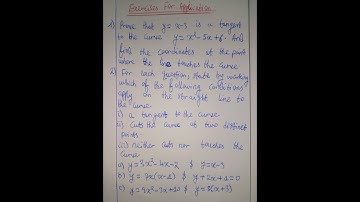 Exercises For Application
1) Prove that y = x-3 is a tangent
to the curve y = x²-5x+6. And
find the coordinates at the point
where the line touches the curve
2) For each question, state by working
which of the following conditions
apply on the straight line to
the curve
i) a tangent to the curve
ii) cuts the curve at two distinct
points
iii) neither cuts nor touches the
curve
a) y = 3x²-4x-2 & y = x-3
b) y = 7x(x-4) & y + 2x + 1 = 0
c) y = 9x²-3x+10 & y = 3(x+3)